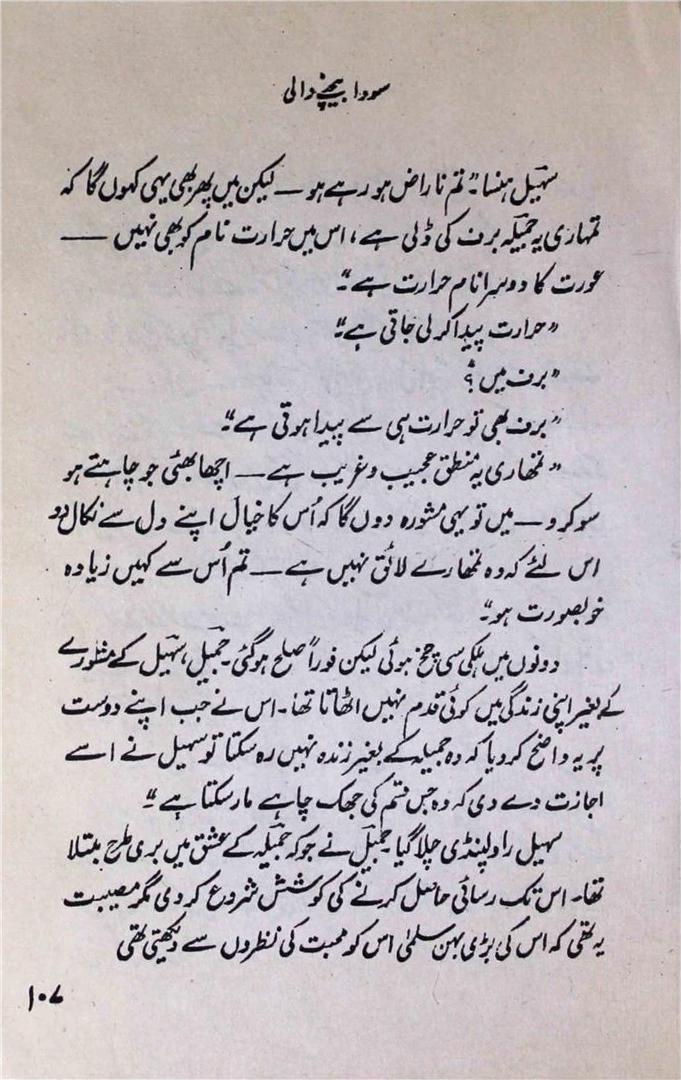 سودا بیچنے والی
سہیل ہنسا۔ ”تم ناراض ہو رہے ہو — لیکن میں پھر بھی یہی کہوں گا کہ
تمہاری یہ جمیلہ برف کی ڈلی ہے، اس میں حرارت نام کو بھی نہیں —
عورت کا دوسرا نام حرارت ہے“۔
”حرارت پیدا کر لی جاتی ہے“۔
”برف میں؟
”برف بھی تو حرارت ہی سے پیدا ہوتی ہے“۔
”تمھاری یہ منطق عجیب و غریب ہے — اچھا بھئی جو چاہتے ہو
سو کرو — میں تو یہی مشورہ دوں گا کہ اُس کا خیال اپنے دل سے نکال دو
اس لئے کہ وہ تمھارے لائق نہیں ہے — تم اُس سے کہیں زیادہ
خوبصورت ہو“۔
دونوں میں ہلکی سی چخ ہوئی لیکن فوراً صلح ہوگئی۔ جمیل، سہیل کے مشورے
کے بغیر اپنی زندگی میں کوئی قدم نہیں اٹھاتا تھا۔ اس نے جب اپنے دوست
پر یہ واضح کر دیا کہ وہ جمیلہ کے بغیر زندہ نہیں رہ سکتا تو سہیل نے اسے
اجازت دے دی کہ وہ جس قسم کی جھک چاہے مار سکتا ہے“۔
سہیل راولپنڈی چلا گیا۔ جمیل نے جو کہ جمیلہ کے عشق میں بری طرح مبتلا
تھا۔ اس تک رسائی حاصل کرنے کی کوشش شروع کر دی مگر مصیبت
یہ تھی کہ اس کی بڑی بہن سلمیٰ اس کو محبت کی نظروں سے دیکھتی تھی
۱۰۷